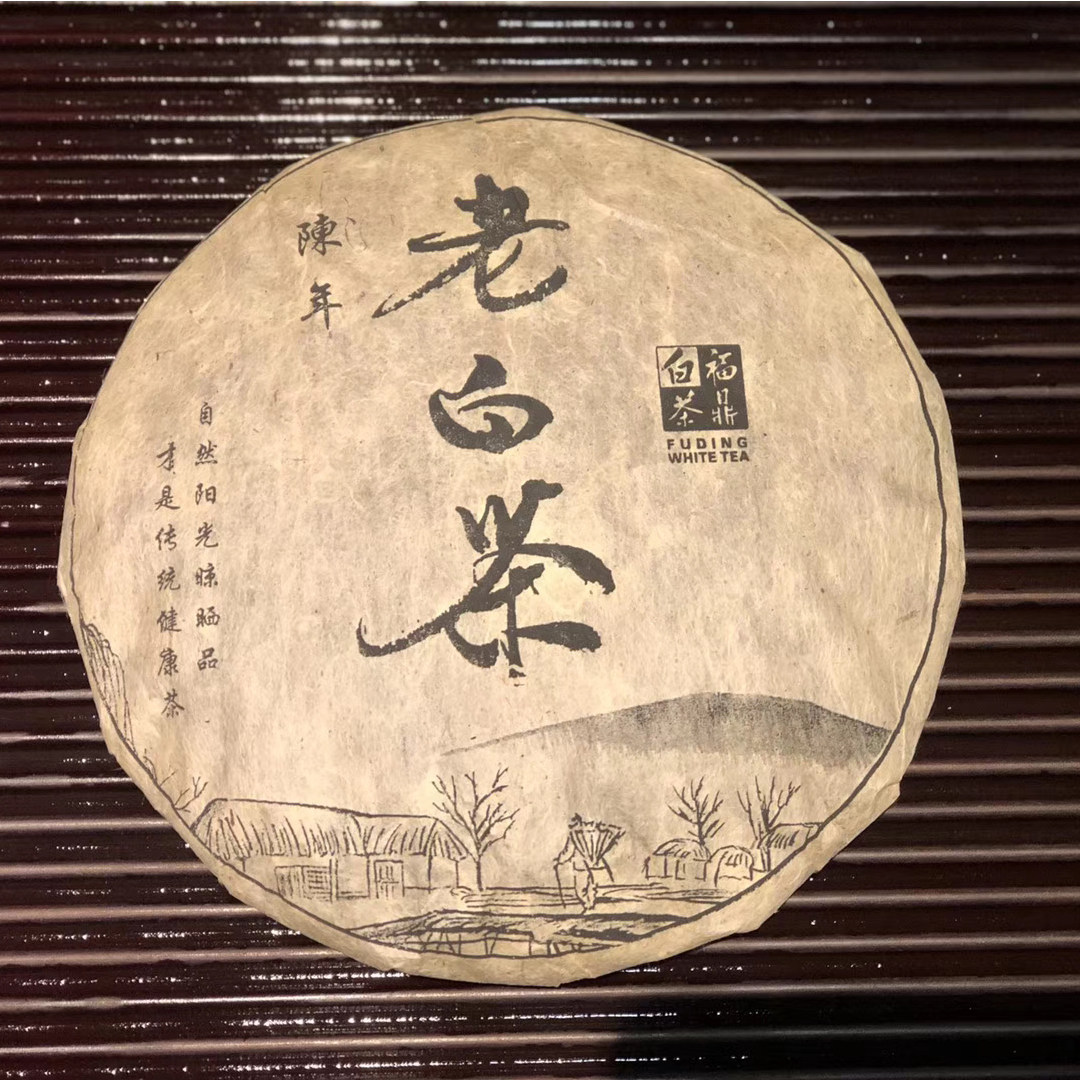 老白茶
陳年
福鼎
白茶
FUDING
WHITE TEA
自然阳光晾晒品
才是传统健康茶